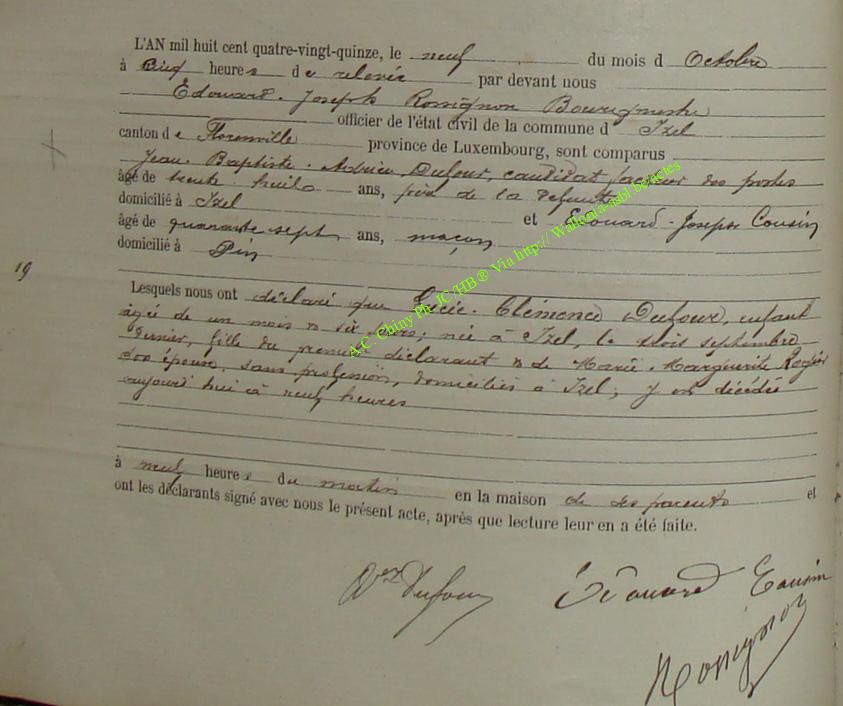 L'AN mil huit cent quatre-vingt-quinze, le neuf du mois d Octobre
à Cinq heures de relevée par devant nous
Edouard-Joseph Rossignon Bourgmestre
officier de l'état civil de la commune d Izel
canton de Florenville province de Luxembourg, sont comparus
Jean-Baptiste-Adrien Dufour, candidat facteur des postes
âgé de trente huit ans, père de la défunte
domicilié à Izel et Edouard-Joseph Cousin
âgé de quarante sept ans, maçon
domicilié à Pin
19
Lesquels nous ont déclaré que Clémence Dufour, enfant
âgée de un mois & six jours, née à Izel, le trois septembre
dernier, fille du premier déclarant & de Marie-Marguerite
son épouse, sans profession, domiciliés à Izel, y est décédée
aujourd'hui à neuf heures
à neuf heures du matin en la maison de ses parents et
ont les déclarants signé avec nous le présent acte, après que lecture leur en a été faite.
Dufour Edouard Cousin
Rossignon
A.C. Chiny Ph. JC/HB® Via http// Wallonia-asbl benactes